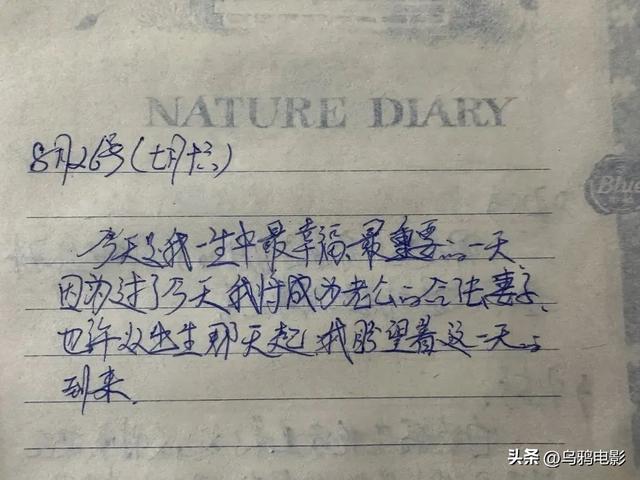 NATURE DIARY
8月26号(七月十)
Blue
今天是我一生中最幸福、最重要的一天
因为过了今天我将成为老公的合法妻子,
也许从出生那天起,我盼望着这一天的
到来.
头条 @乌鸦电影